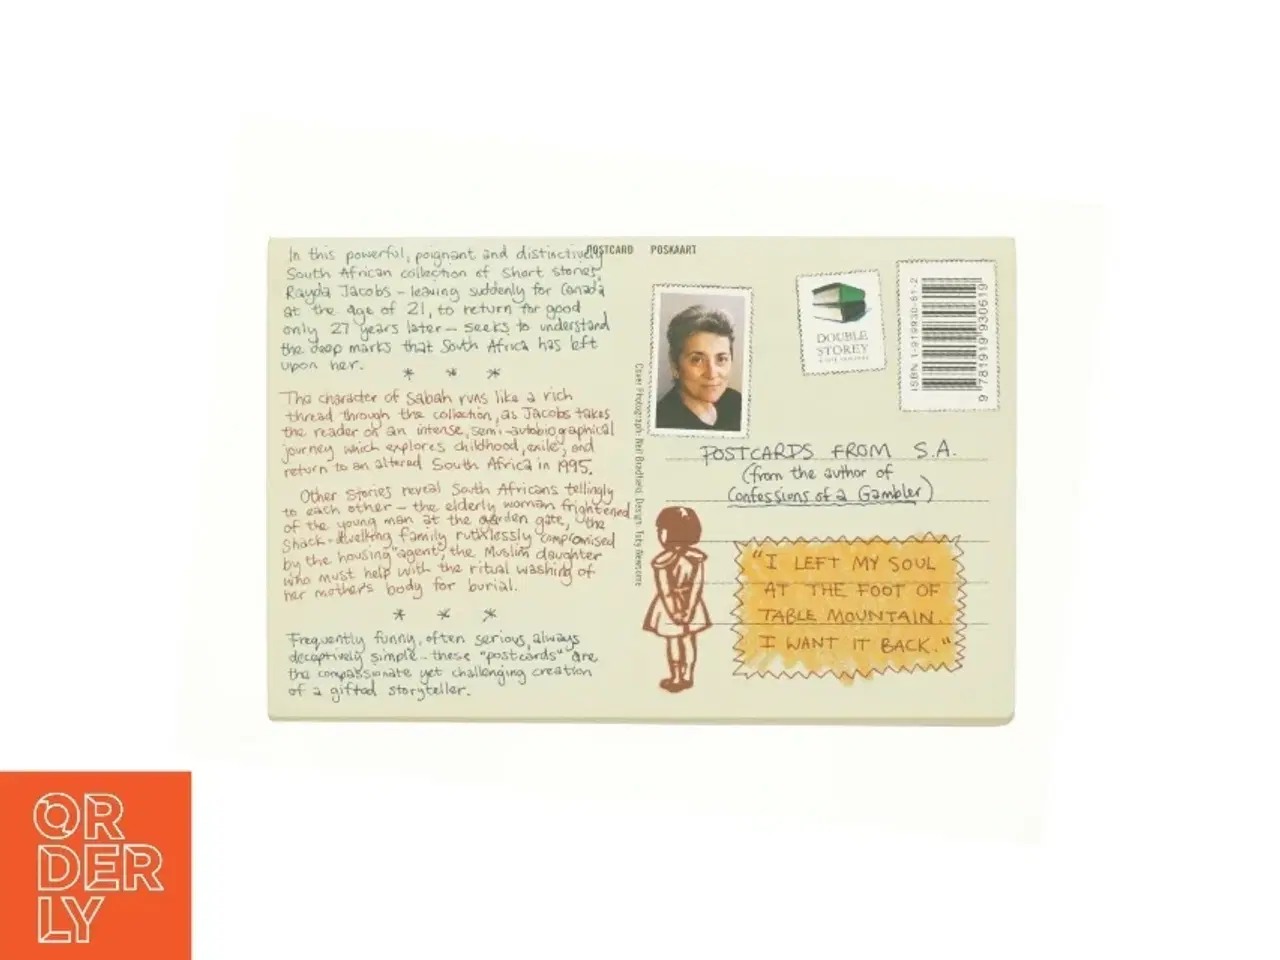 In this powerful, poignant and distinctively
South African collection of short stories,
Rayda Jacobs – leaving suddenly for Canada
at the age of 21, to return for good
only 27 years later – seeks to understand
the deep marks that South Africa has left
upon her.
* * *
The character of Sabah runs like a rich
thread through the collection, as Jacobs takes
the reader on an intense, semi-autobiographical
journey which explores childhood, exile, and
return to an altered South Africa in 1995.
Other stories reveal South Africans tellingly
to each other – the elderly woman frightened
of the young man at the garden gate, the
shack-dwelling family ruthlessly compromised
by the housing agent, the Muslim daughter
who must help with the ritual washing of
her mother's body for burial.
* * *
Frequently funny, often serious, always
deceptively simple – these "postcards" are
the compassionate yet challenging creation
of a gifted storyteller.
POSTCARD POSKAART
Cover Photograph: Neil Bradfield. Design: Toby Newsome
DOUBLE
STOREY
ISBN 1-919930-61-2
9781919930619
POSTCARDS FROM S.A.
(from the author of
Confessions of a Gambler)
"I LEFT MY SOUL
AT THE FOOT OF
TABLE MOUNTAIN.
I WANT IT BACK."
OR
DER
LY